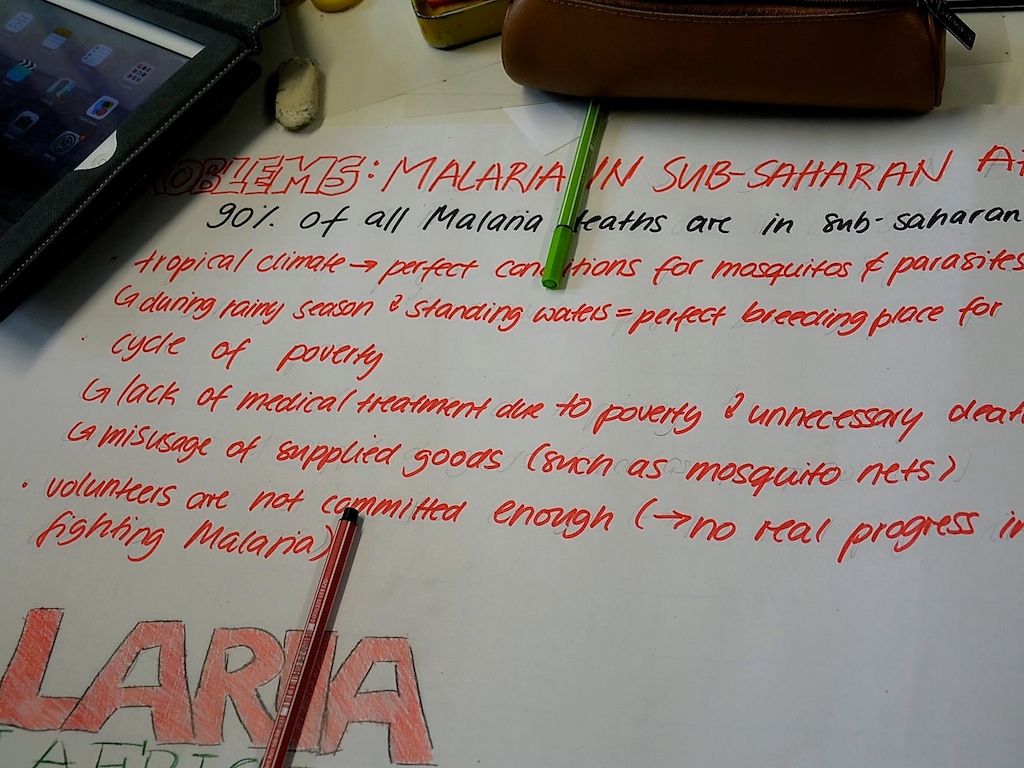 PROBLEMS: MALARIA IN SUB-SAHARAN AF
90% of all Malaria deaths are in sub-saharan
· tropical climate → perfect conditions for mosquitos & parasites
↳ during rainy season & standing waters = perfect breeding place for
· cycle of poverty
↳ lack of medical treatment due to poverty & unnecessary deat
↳ misusage of supplied goods (such as mosquito nets)
· volunteers are not committed enough (→ no real progress in
fighting Malaria)
LARIA
AFRIC